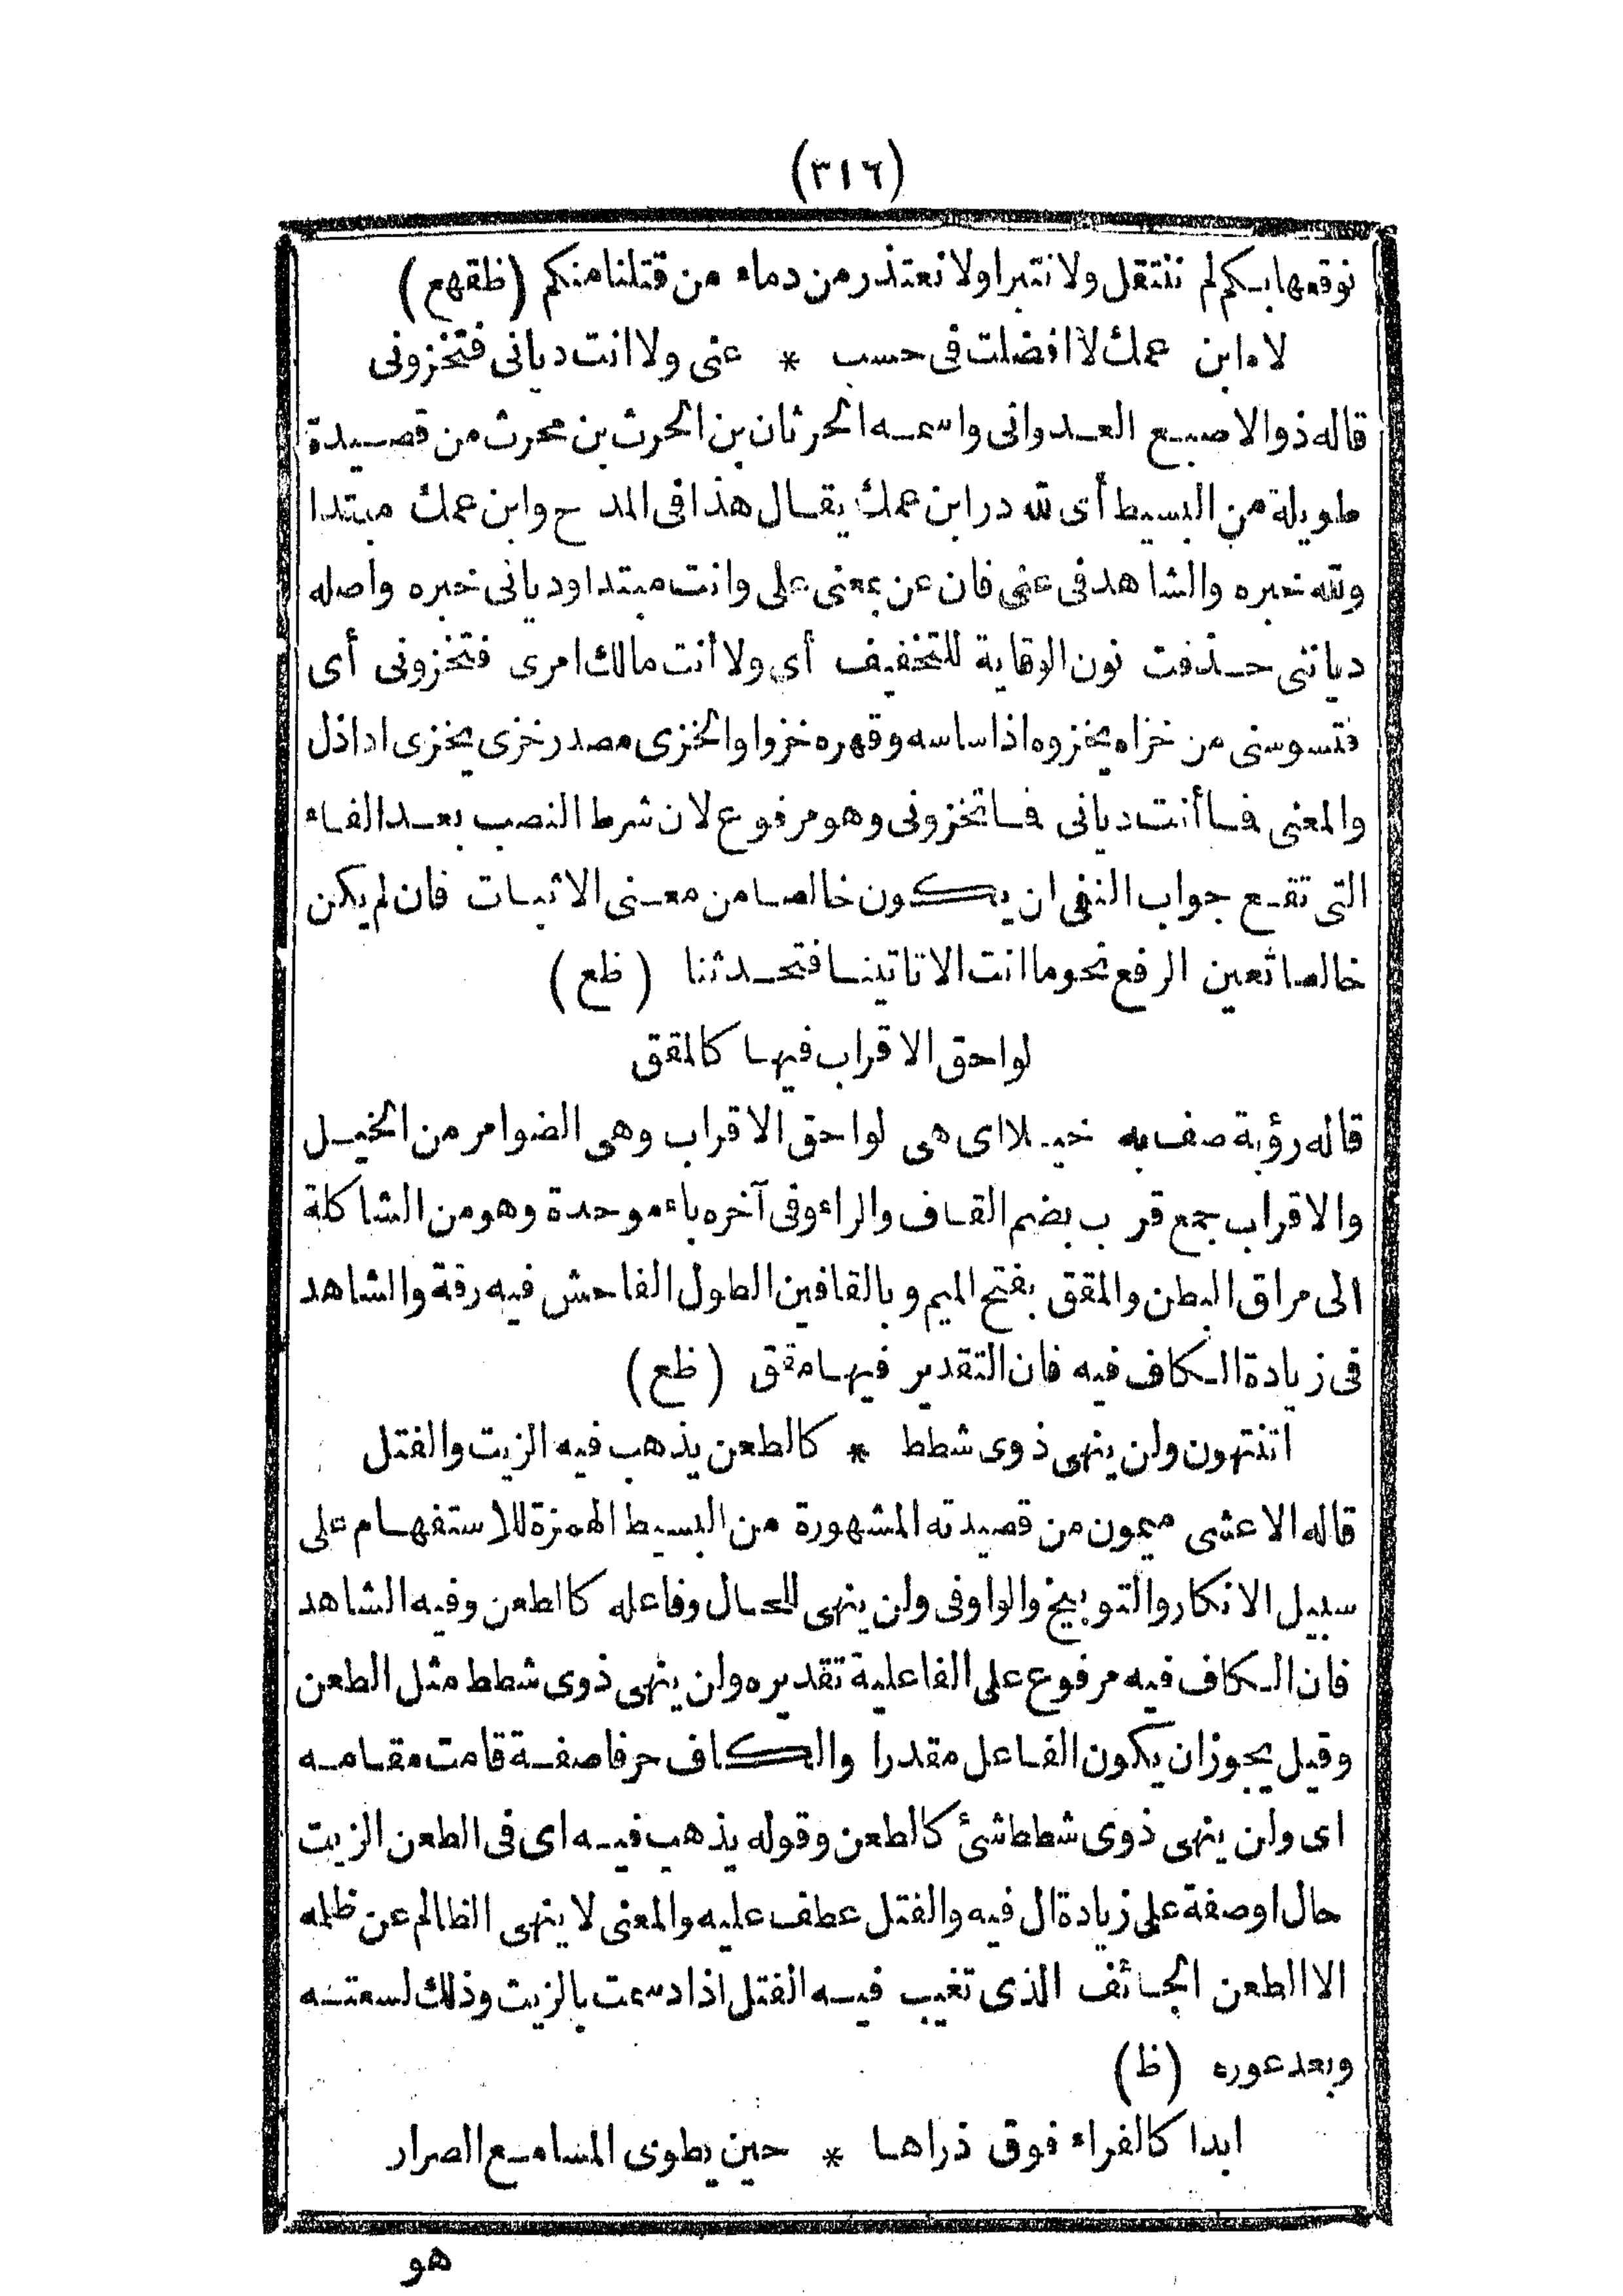 (٣١٦)
نوقعها بكم لم ننتقل ولا نتبرا ولا نعتذر من دماء من قتلنا منكم (ظقهع)
لاه ابن عمك لا افضلت فى حسب * عنى ولا انت ديانى فتخزونى
قاله ذو الاصبع العدوانى واسمه الحرثان بن الحرث بن محرث من قصيدة
طويلة من البسيط أى لله در ابن عمك يقال هذا فى المدح وابن عمك مبتدا
ولله خبره والشاهد فى عنى فان عن بمعنى على وانت مبتدا وديانى خبره واصله
دياننى حذفت نون الوقاية للتخفيف أى ولا أنت مالك امرى فتخزونى أى
فتسوسنى من خزاه يخزوه اذا ساسه وقهره خزوا والخزى مصدر خزى يخزى اذا ذل
والمعنى فا أنت ديانى فاتخزونى وهو مرفوع لان شرط النصب بعد الفاء
التى تقع جواب النفى ان يكون خالصا من معنى الاثبات فان لم يكن
خالصا تعين الرفع نحو ما انت الا تاتينا فتحدثنا (ظع)
لواحق الاقراب فيها كالمقق
قاله رؤبة صف به خيلا اى هى لواحق الاقراب وهى الضوامر من الخيل
والاقراب جمع قرب بضم القاف والراء وفى آخره باء موحدة وهو من الشاكلة
الى مراق البطن والمقق بفتح الميم وبالقافين الطول الفاحش فيه رقة والشاهد
فى زيادة الكاف فيه فان التقدير فيها مقق (ظع)
اتنتهون ولن ينهى ذوى شطط * كالطعن يذهب فيه الزيت والفتل
قاله الاعشى ميمون من قصيدته المشهورة من البسيط الهمزة للاستفهام على
سبيل الانكار والتوبيخ والواو فى ولن ينهى للحال وفاعله كالطعن وفيه الشاهد
فان الكاف فيه مرفوع على الفاعلية تقديره ولن ينهى ذوى شطط مثل الطعن
وقيل يجوز ان يكون الفاعل مقدرا والكاف حرفا صفة قامت مقامه
اى ولن ينهى ذوى شطط شئ كالطعن وقوله يذهب فيه اى فى الطعن الزيت
حال او صفة على زيادة ال فيه والفتل عطف عليه والمعنى لا ينهى الظالم عن ظلمه
الا الطعن الجائف الذى تغيب فيه الفتل اذا دسمت بالزيت وذلك لسعته
وبعد عوره (ظ)
ابدا كالفراء فوق ذراها * حين يطوى المسامع الصرار
هو